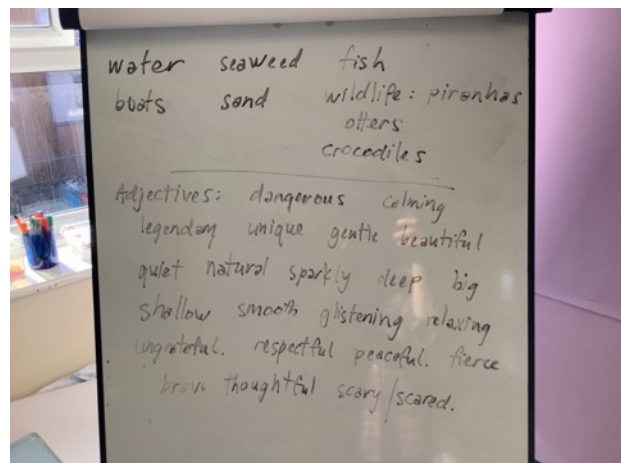 water seaweed fish
boats sand wildlife: piranhas
otters
crocodiles
Adjectives: dangerous calming
legendary unique gentle beautiful
quiet natural sparkly deep big
shallow smooth glistening relaxing
ungrateful. respectful peaceful. fierce
brave thoughtful scary/scared.